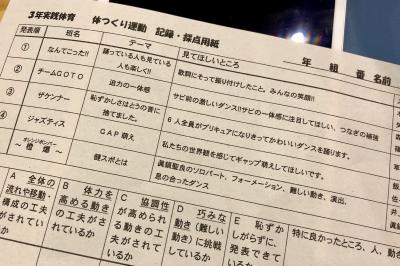 3年実践体育　体つくり運動　記録・採点用紙
年　組　番　名前
発表順　班名　テーマ　見てほしいところ
① なんてこった!!　踊っている人も見ている人も楽しく!!　歌詞にそって振り付けしたこと。みんなの笑顔!!
② チームGOTO　迫力の一体感　サビ前の激しいダンス!!サビの一体感に注目してほしい、つなぎの補強
③ ザケンナー　恥ずかしさはとうの昔に捨てました。　6人全員がプリキュアになりきってかわいいダンスを踊ります。
④ ジャズティス　GAP萌え　私たちの世界観を感じてギャップ萌えしてほしいです。
オレンジボンバー
～橙爆～　健スポとは　眞鍋聖良のソロパート、フォーメーション、難しい動き、演出、
息の合ったダンス
A 全体の流れや移動・構成の工夫がされているか
B 体力を高める動きの工夫がされているか
C 協調性が高められる動きの工夫がされているか
D 巧みな動き(難しい動き)に挑戦しているか
E 恥ずかしがらずに、発表できているか
特に良かったところ、人、動き